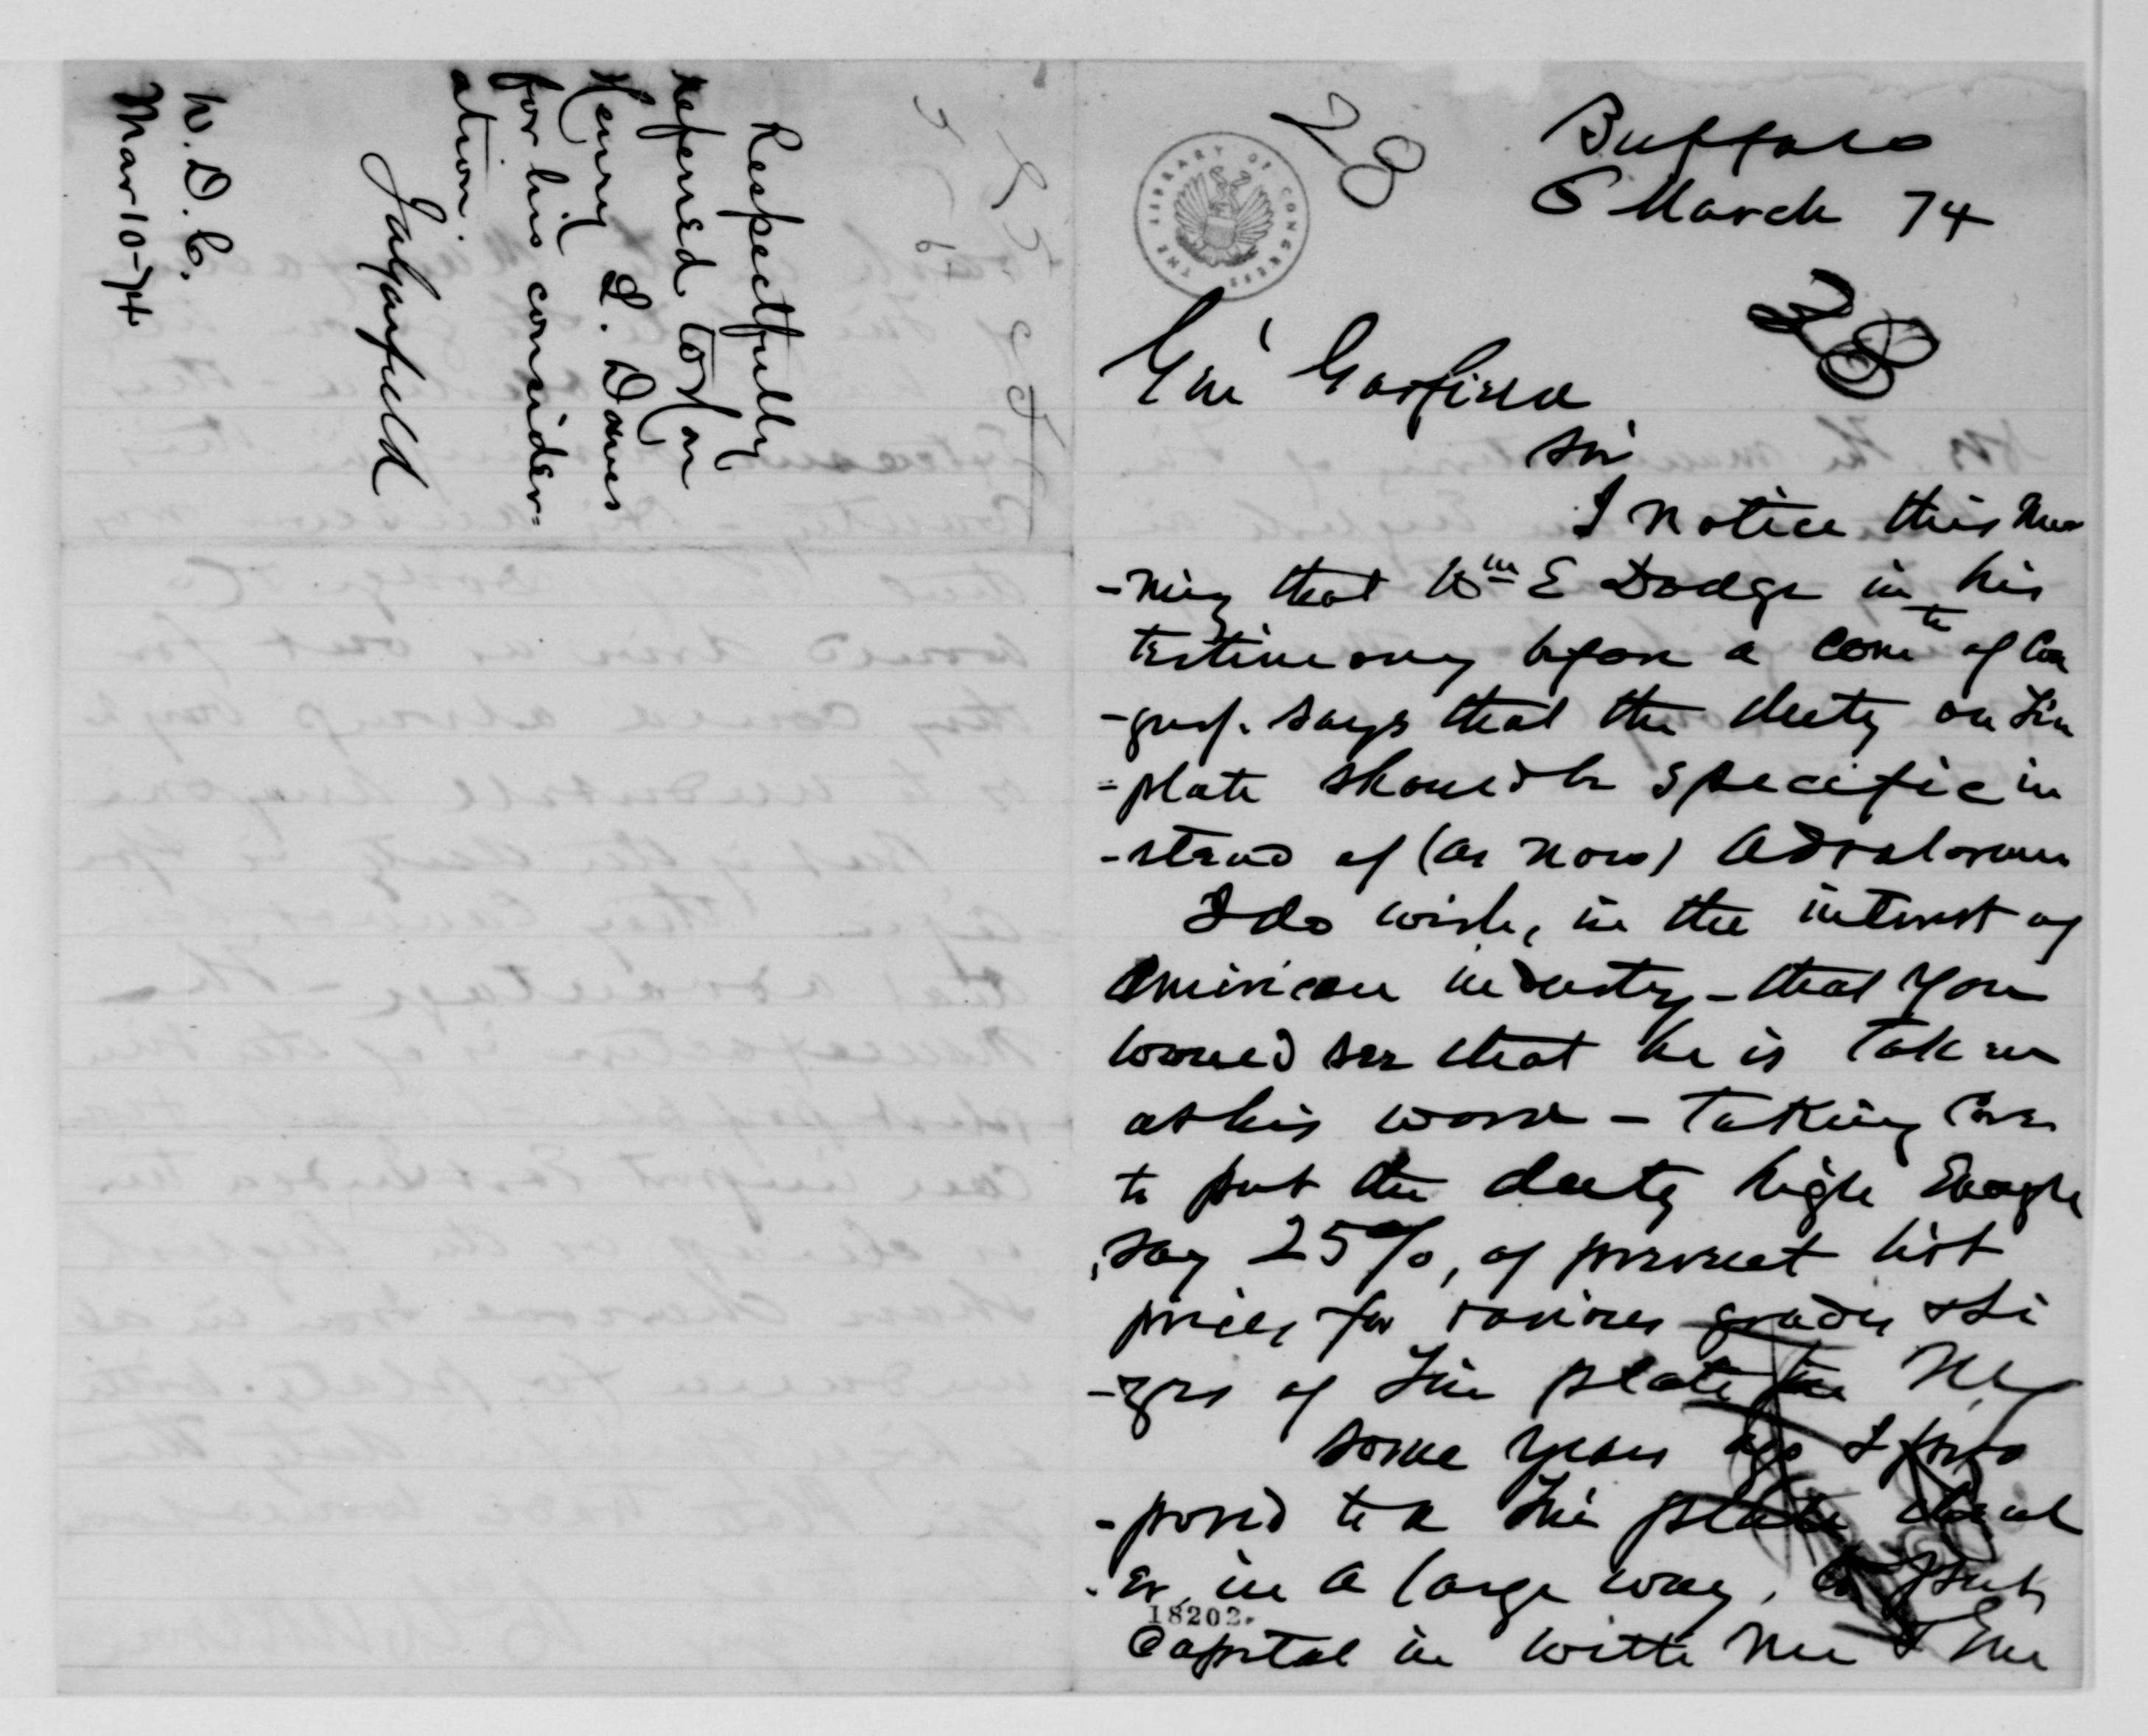 Respectfully
referred to Hon
Henry L. Dawes
for his consider=
ation
Jagarfield
W. D. C.
Mar 10-74
28
THE LIBRARY OF CONGRESS
Buffalo
6 March 74
28
Gen' Garfield
Sir
I notice this mor
-ning that Wm E Dodge in his
testimony before a comte of Con
-gress. says that the duty on Tin
=plate should be specific in
-stead of (as now) advalorem
I do wish, in the interest of
American industry - that you
would see that he is taken
at his word - taking care
to put the duty high Enough
, say 25%, of present list
prices for various grades & Si
-zes of Tin plate in N.Y
Some years ago I pro
-posed to a Tin plate deal
-er, in a large way, to put
18202.
Capital in with me & Eme